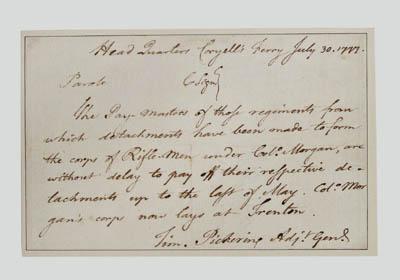 Head Quarters Coryell's Ferry July 30. 1777.
Parole C. Sign
The Pay-Masters of those regiments from
which detachments have been made to form
the corps of Rifle-Men under Colo. Morgan, are
without delay to pay off their respective de-
tachments up to the last of May. Colo. Mor
gan's corps now lays at Trenton.
Tim. Pickering Adjt. Genl.